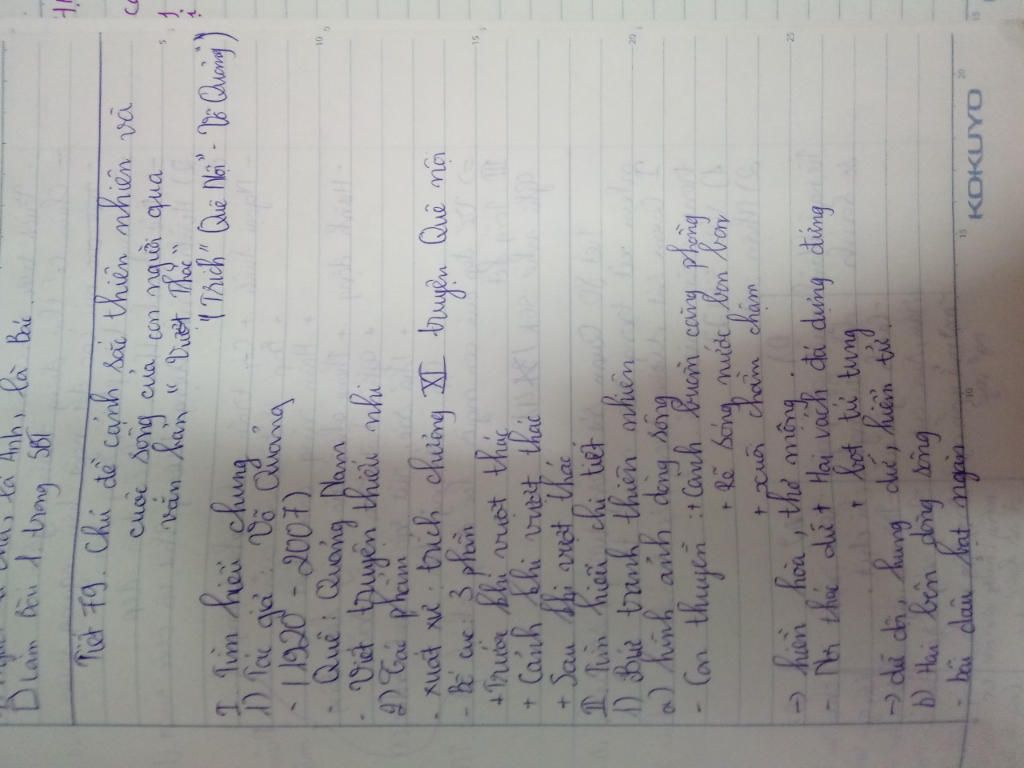 Điểm bên 1 trang SBT
Tiết 79. Chủ đề cảnh sắc thiên nhiên và
cuộc sống của con người qua
văn bản " Vượt Thác"
( Trích " Quê Nội" - Võ Quảng)
I Tìm hiểu chung
1) Tác giả Võ Quảng
- (1920 - 2007)
- Quê: Quảng Nam
- Viết truyện thiếu nhi
2) Tác phẩm
- xuất xứ: trích chương XI truyện Quê nội
- Bố cục: 3 phần
+ Trước khi vượt thác
+ Cảnh khi vượt thác
+ Sau khi vượt thác
II Tìm hiểu chi tiết
1) Bức tranh thiên nhiên
a) hình ảnh dòng sông
- Con thuyền: + Cánh buồm căng phồng
+ rẽ sóng nước bon bon
+ xuôi chầm chậm
-> hiền hòa, thơ mộng.
- Nơi thác dữ + Hai vách đá dựng đứng
+ bọt tứ tung
-> dữ dội, hung dữ, hiểm trở.
b) Hai bên dòng sông
- bãi dâu bạt ngàn
KOKUYO
5
10
15
20
25
5
10
15
20